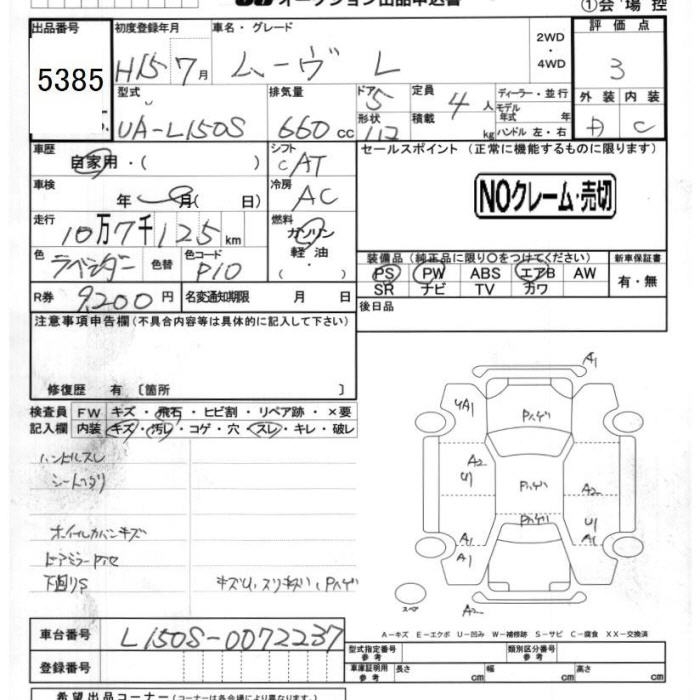 オークション出品申込書
①会場控
出品番号 初度登録年月 車名・グレード 2WD・4WD 評価点
5385 H15 7月 ムーヴ L 3
型式 排気量 ドア 定員 ディーラー・並行 外装 内装
UA-L150S 660 cc 5 4人 モデル年式 年 D C
形状 積載 kg ハンドル 左・右
車歴 自家用・( ) シフト CAT セールスポイント (正常に機能するものに限ります)
車検 年 月( 日) 冷房 AC NOクレーム・売切
走行 10万7千125km 燃料 ガソリン・軽油・
色 ラベンダー 色替 色コード P10 装備品(純正品に限り〇をつけてください) 新車保証書
PS PW ABS エアB AW 有・無
SR ナビ TV カワ
R券 9,200円 名変通知期限 月 日 後日品
注意事項申告欄(不具合内容等は具体的に記入して下さい)
修復歴 有 〔箇所 〕
検査員 FW キズ・飛石・ヒビ割・リペア跡・×要
記入欄 内装 キズ・汚レ・コゲ・穴・スレ・キレ・破レ
ハンドルスレ
シートヘタリ
ホイルカバーキズ
下回りS
A1
UA1
Pハゲ
A2
U1
Pハゲ
A2
Pハゲ
U1
A1
A1
A1
スペア
A2
A-キズ E-エクボ U-凹み W-補修跡 S-サビ C-腐食 XX-交換済
車台番号 L150S-0072237
登録番号
型式指定番号 参考 類別区分番号 参考
車庫証明用 参考 長さ cm 幅 cm 高さ cm
希望出品コーナー(コーナーは各会場により異なります。)